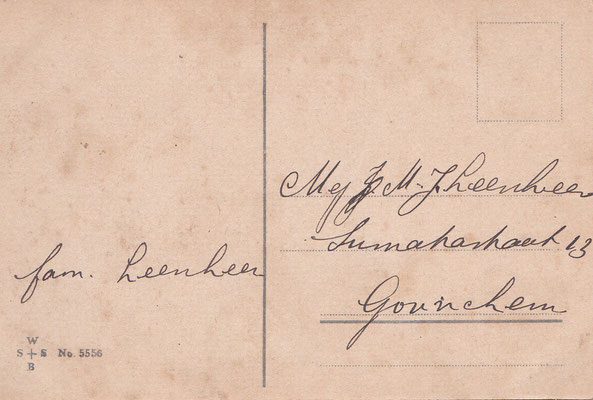 fam. Leenheer
W
S + S No. 5556
B
Mej J. M. J. Leenheer
Sumatrastraat 13
Gorinchem